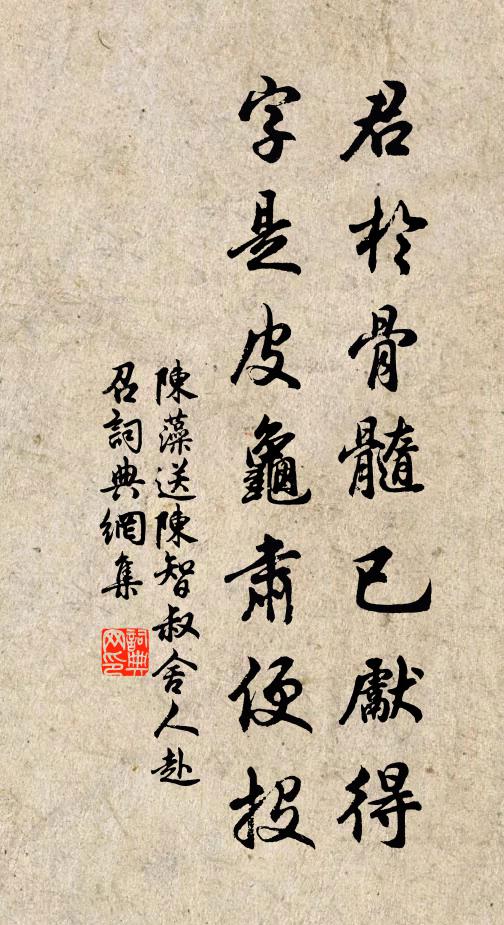 君於骨髓已獻得
字是皮龜肅便投
陳藻送陳智叔舍人赴
召詞典網集
詞典
网印